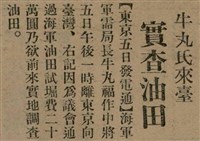 牛丸氏來臺
實查油田
【東京五日發電通】海軍
軍需局長牛丸福作中將
五日午後一時離東京向
臺灣、右記因爲議會通
過海軍油田試堀費二十
萬圓乃欲前來實地調査
油田。